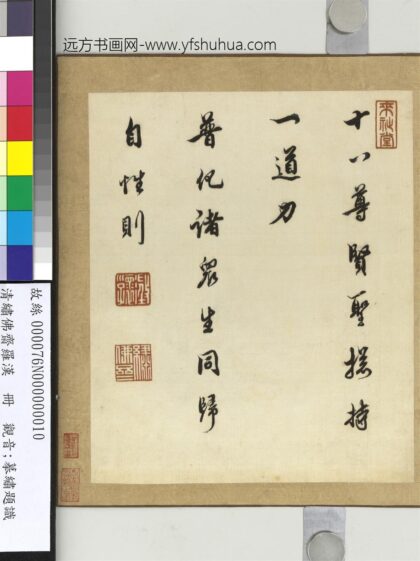 远方书画网-www.yfshuhua.com
十八尊賢聖總持
一道力
普化諸眾生同歸
自性則
故絲 000076N000000010
清繡佛齋羅漢　冊　觀音;摹繡題識